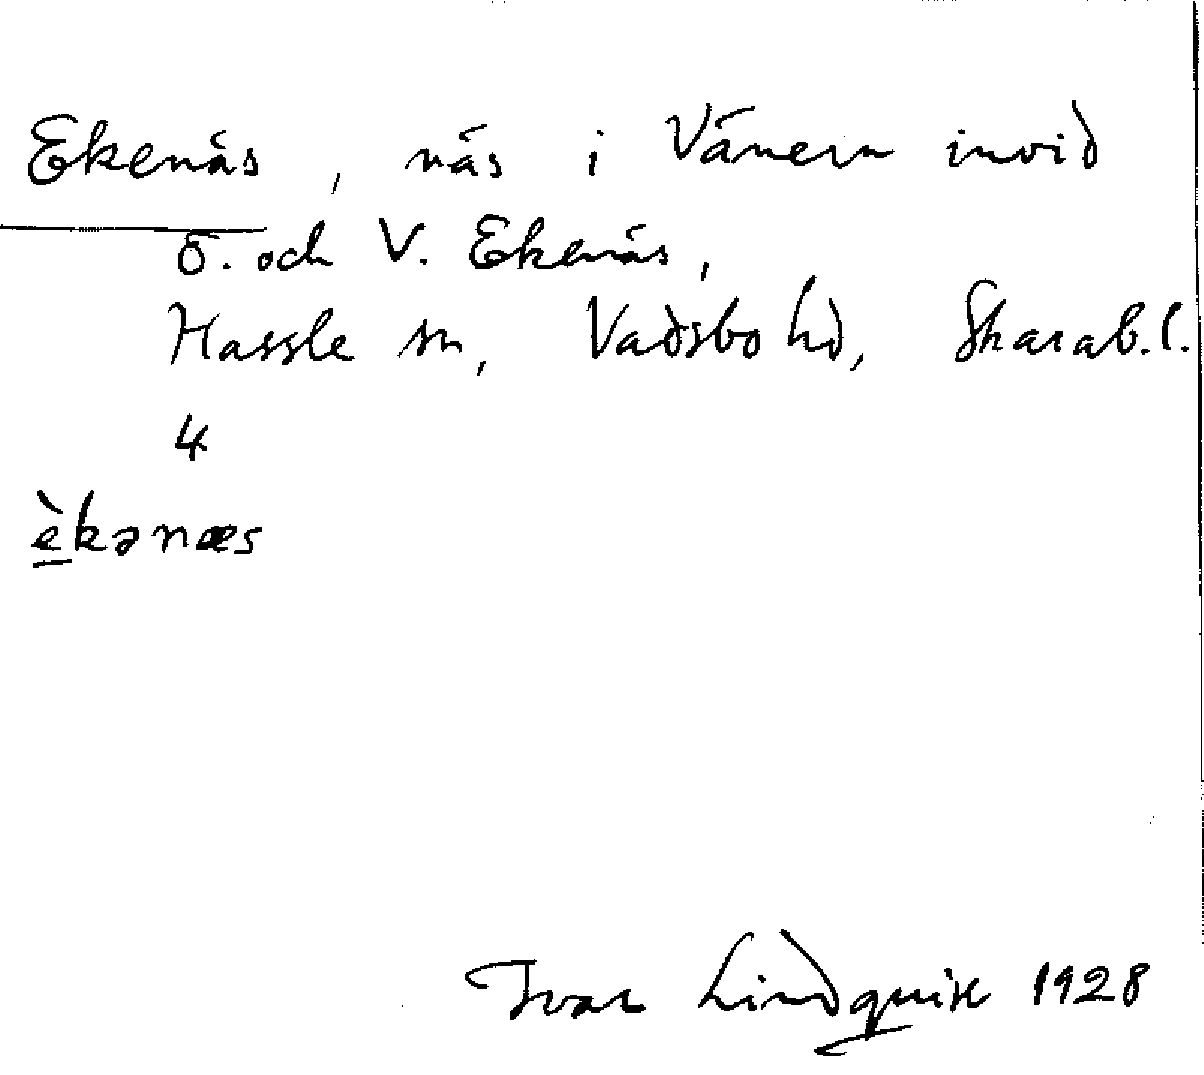 Ekenäs, näs i Vänern invid
Ö. och V. Ekenäs,
Hassle sn, Vadsbo hd, Skarab. l.
4
èkənæs
Ivar Lindquist 1928